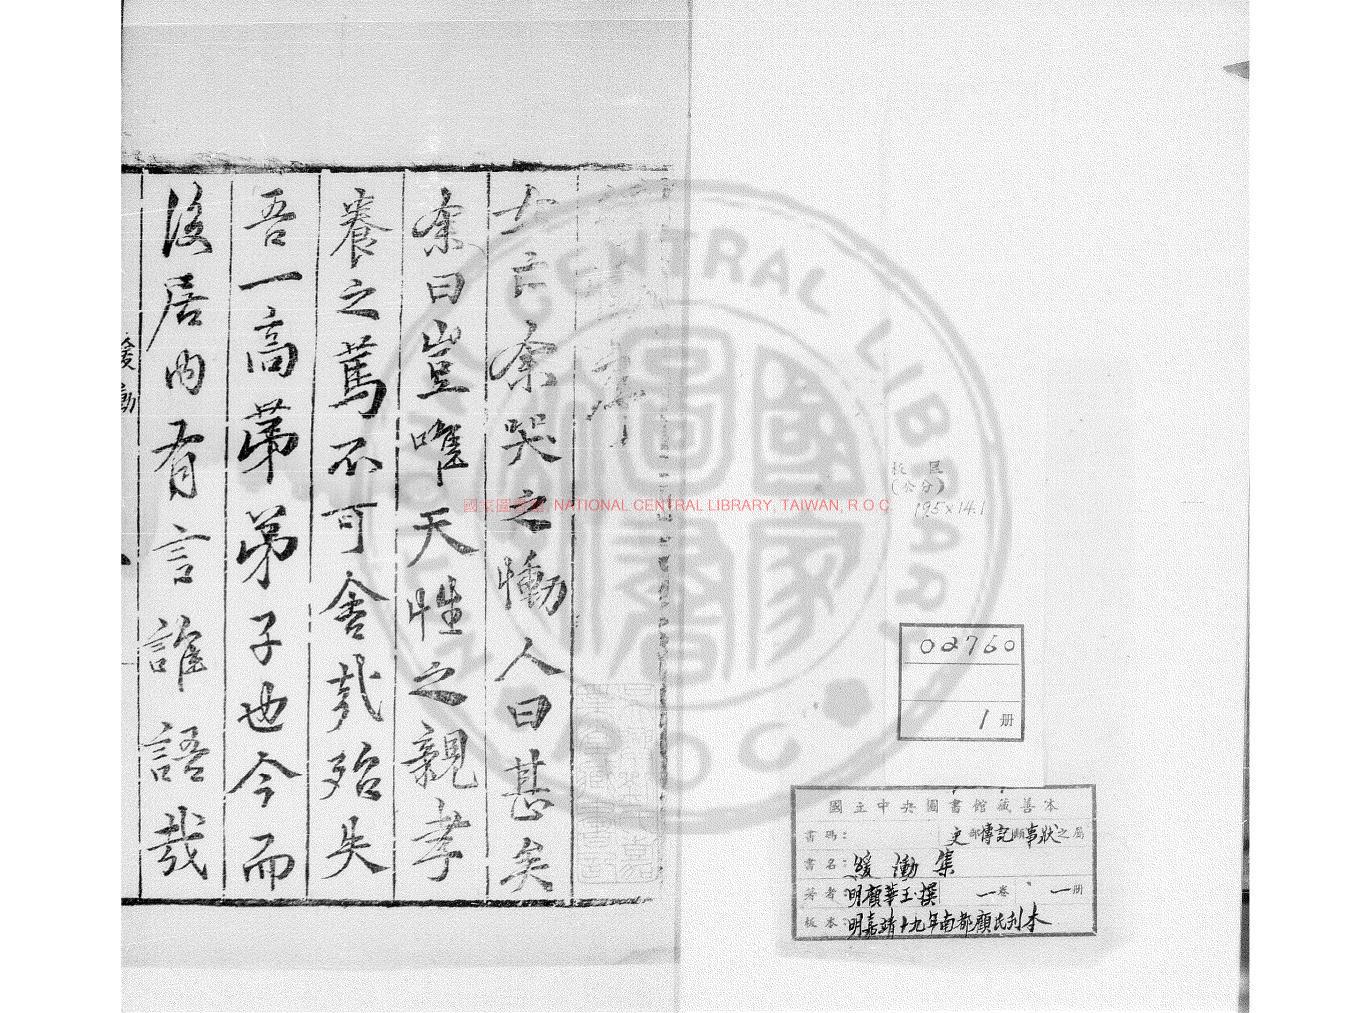 女亡余哭之慟人曰甚矣
余曰豈唯天性之親孝
養之篤不可舍哉殆失
吾一高第弟子也今而
後居內有言誰語哉
緩慟
國家圖書館 NATIONAL CENTRAL LIBRARY, TAIWAN, R.O.C.
NATIONAL CENTRAL LIBRARY
R.O.C.
國家圖書
板匡
(公分)
19.5x14.1
02760
1 册
國立中央圖書館藏善本
書碼: 史部傳記類事狀之屬
書名: 緩慟集
著者: 明顧華玉撰 一卷 一册
板本: 明嘉靖十九年南都顧氏刊本